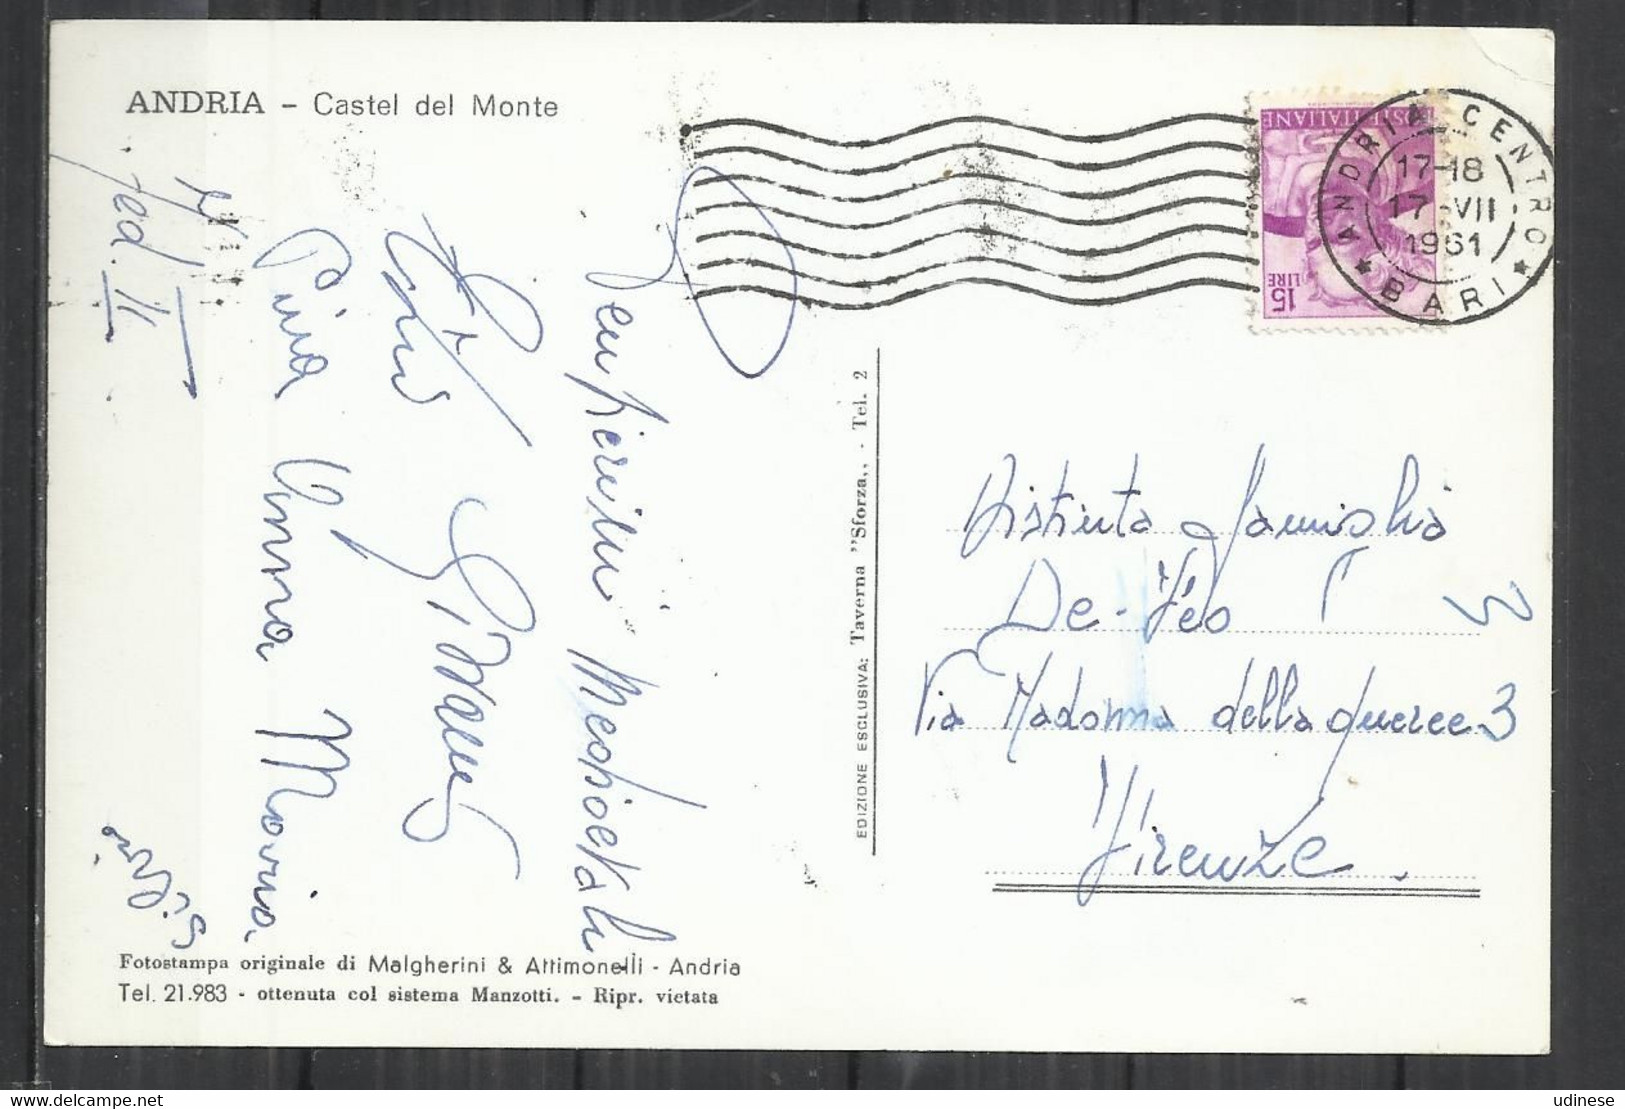 ANDRIA - Castel del Monte
POSTE ITALIANE
15 LIRE
ANDRIA CENTRO
17-18
17-VII
1961
* BARI *
Pina Anna Maria
Silvi
EDIZIONE ESCLUSIVA: Taverna "Sforza,, - Tel. 2
Distinta Famiglia
De-Feo
Via Madonna della Querce 3
Firenze.
3
Fotostampa originale di Malgherini & Attimonelli - Andria
Tel. 21.983 - ottenuta col sistema Manzotti. - Ripr. vietata
udinese